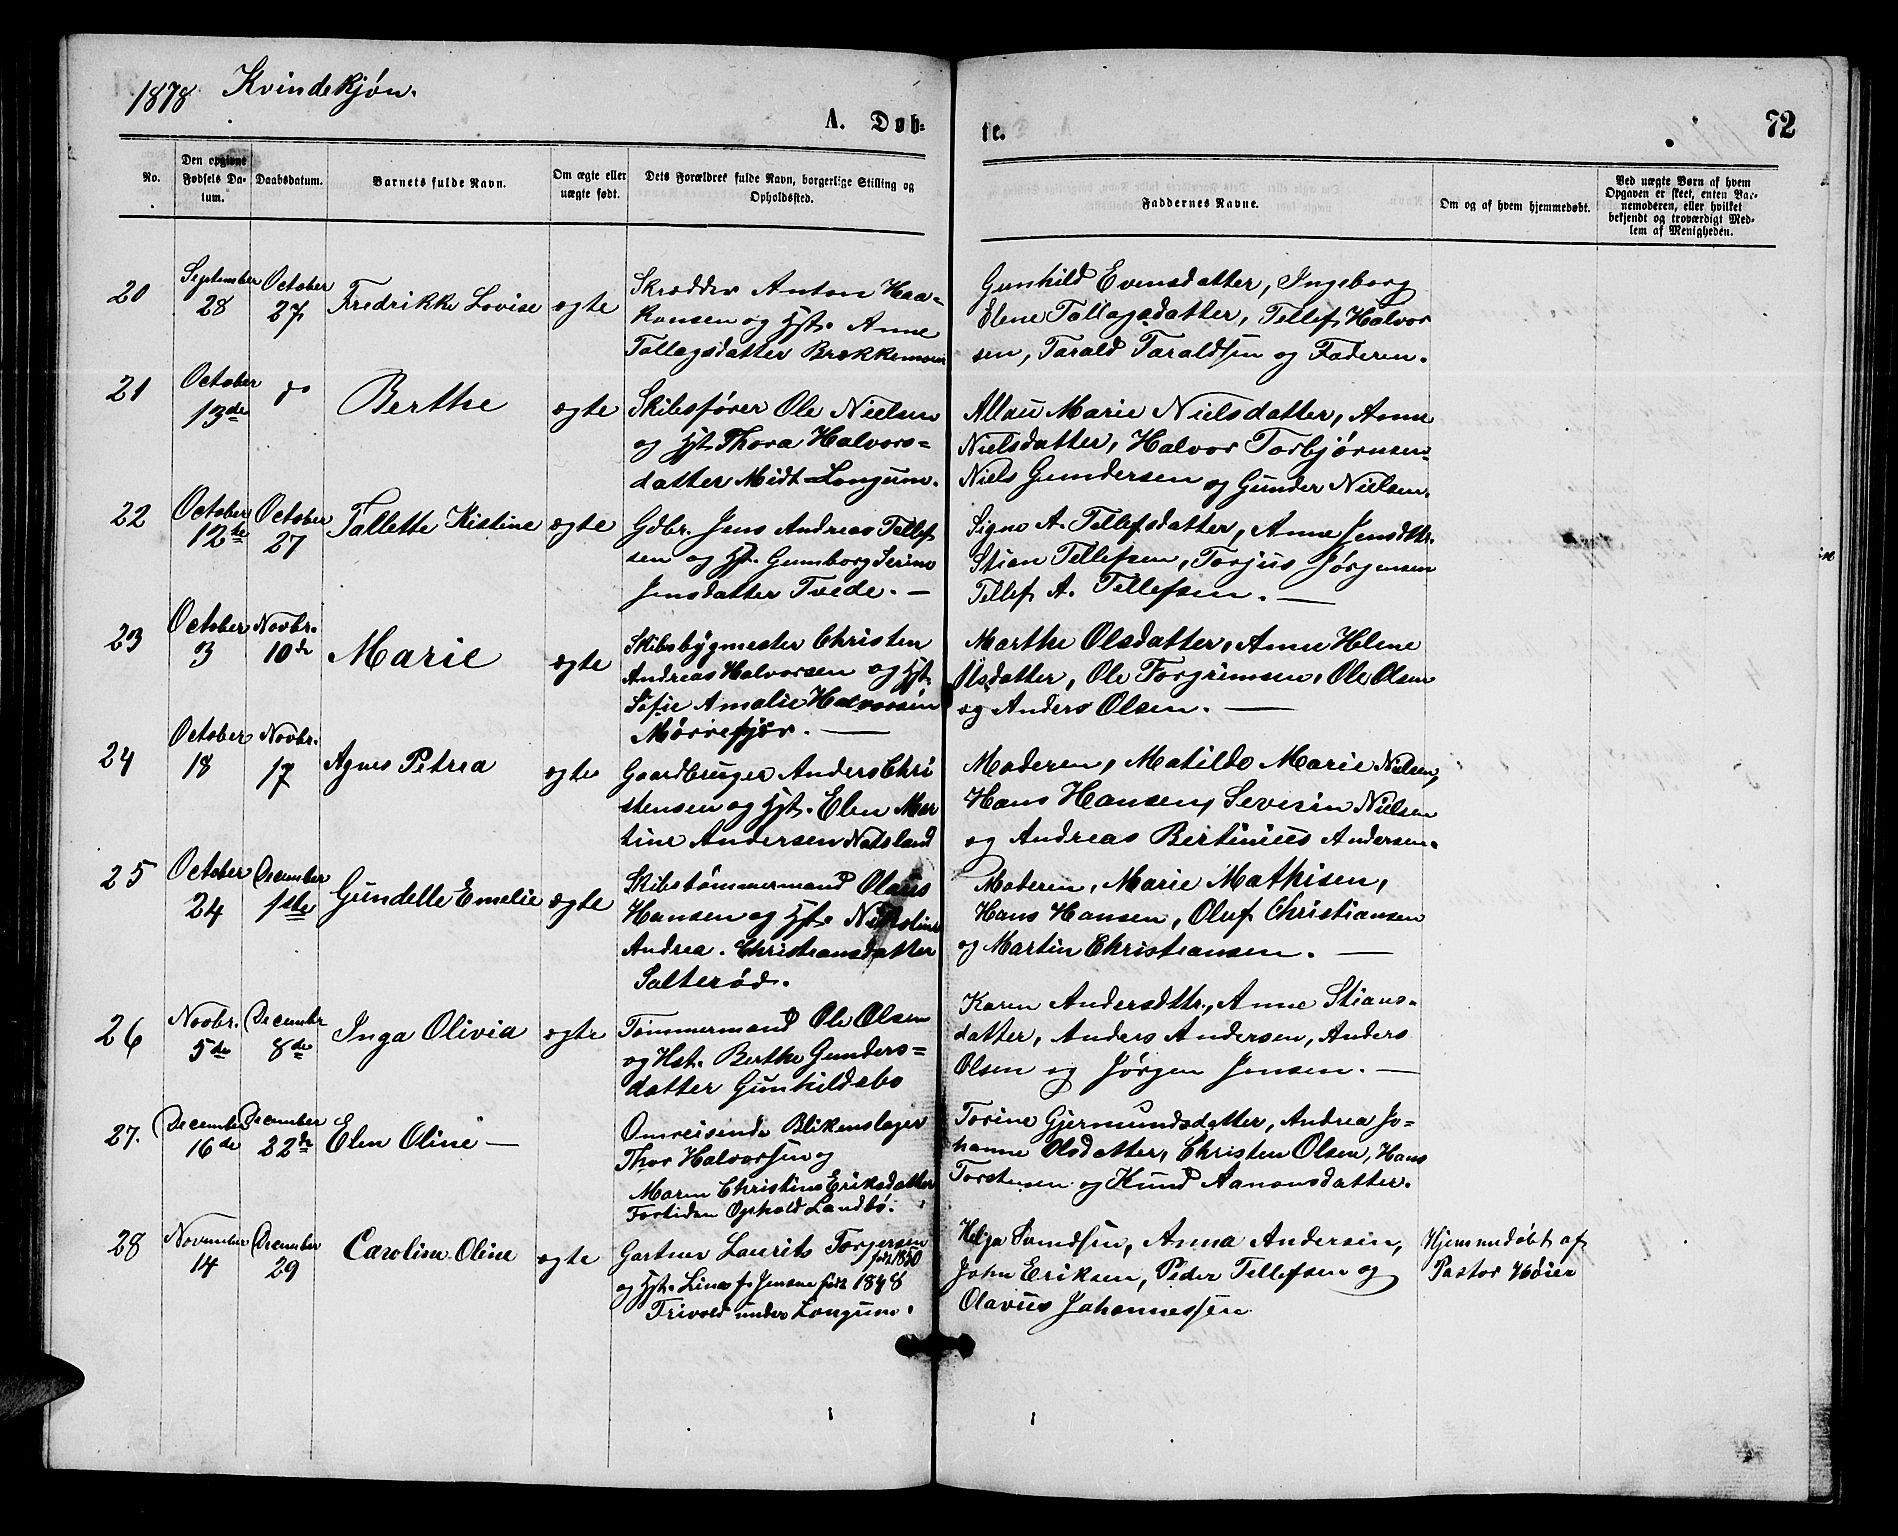 1878. Kvindekjøn.
A. Døb-
te.
72
No.
Den opgivne Fødsels Datum.
Daabsdatum.
Barnets fulde Navn.
Om ægte eller uægte født.
Dets Forældres fulde Navn, borgerlige Stilling og Opholdssted.
Faddernes Navne.
Om og af hvem hjemmedøbt.
Ved uægte Børn af hvem Opgaven er skeet, enten Barnemoderen, eller hvilket bekjendt og troværdigt Medlem af Menigheden.
20
September 28
October 27
Fredrikke Lovise
ægte
Skrædder Anton Haa-
konsen og Hst. Anne
Tallagsdatter Brekkemoen
Gunhild Evensdatter, Ingeborg
Elene Tallagsdatter, Tellef Halvor
sen, Tarald Taraldsen og Faderen.
21
October 13de
do
Berthe
ægte
Skibsfører Ole Nielsen
og Hst. Thora Halvors-
datter Midt-Longum.
Marie Nielsdatter, Anne
Nielsdatter, Halvor Torbjørnsen
Niels Gundersen og Gunder Nielsen.
22
October 12te
October 27
Tallette Kistine
ægte
Gdbr. Jens Andreas Tellef
sen og Hst. Gunborg Serine
Jensdatter Tvede. —
Signe A. Tellefsdatter, Anne Jensdttr.
Stian Tellefsen, Torjus Jørgensen
Tellef A. Tellefsen. —
23
October 3
Novbr. 10de
Marie
ægte
Skibsbygmester Christen
Andreas Halvorsen og Hst.
Sofie Amalie Halvorsen
Mørrefjær. —
Marthe Olsdatter, Anne Helene
Olsdatter, Ole Torgrimsen, Ole Olsen
og Anders Olsen. —
24
October 18
Novbr. 17
Agnes Petrea
ægte
Gaardbruger Anders Chri
stensen og Hst. Elen Mar
tine Andersen Natsland
Moderen, Matilde Marie Nielsen,
Hans Hansen, Severin Nielsen
og Andreas Bertinius Andersen.
25
October 24
December 1ste
Gundelle Emelie
ægte
Skibstømmermand Olaus
Hansen og Hst. Nikoline
Andrea Christiansdatter
Salterød.
Moderen, Marie Mathisen,
Hans Hansen, Oluf Christiansen
og Martin Christiansen. —
26
Novbr. 5de
Decembr 8de
Inga Olivia
ægte
Tømmermand Ole Olsen
og Hst. Berthe Gunders-
datter Gunhildsbo
Karen Andersdttr., Anne Stians-
datter, Anders Andersen, Anders
Olsen og Jørgen Jensen. —
27.
December 16de
December 22de
Elen Oline —
Omreisende Blikenslager
Thor Halvorsen og
Maren Christine Eriksdatter
Fortiden Ophold Landbø.
Torine Gjermundsdatter, Andrea Jo-
hanne Olsdatter, Christen Olsen, Hans
Torstensen og Knud Aanonsdatter.
28
November 14
December 29
Caroline Oline
ægte
Gartner Laurits Torgersen
født 1850
og Hst. Line f. Jensen født 1848
Trivold under Longum.
Helga Svendsen, Anna Andersen,
John Eriksen, Peder Tellefsen og
Olavus Johannessen
Hjemmedøbt af
Pastor Høier